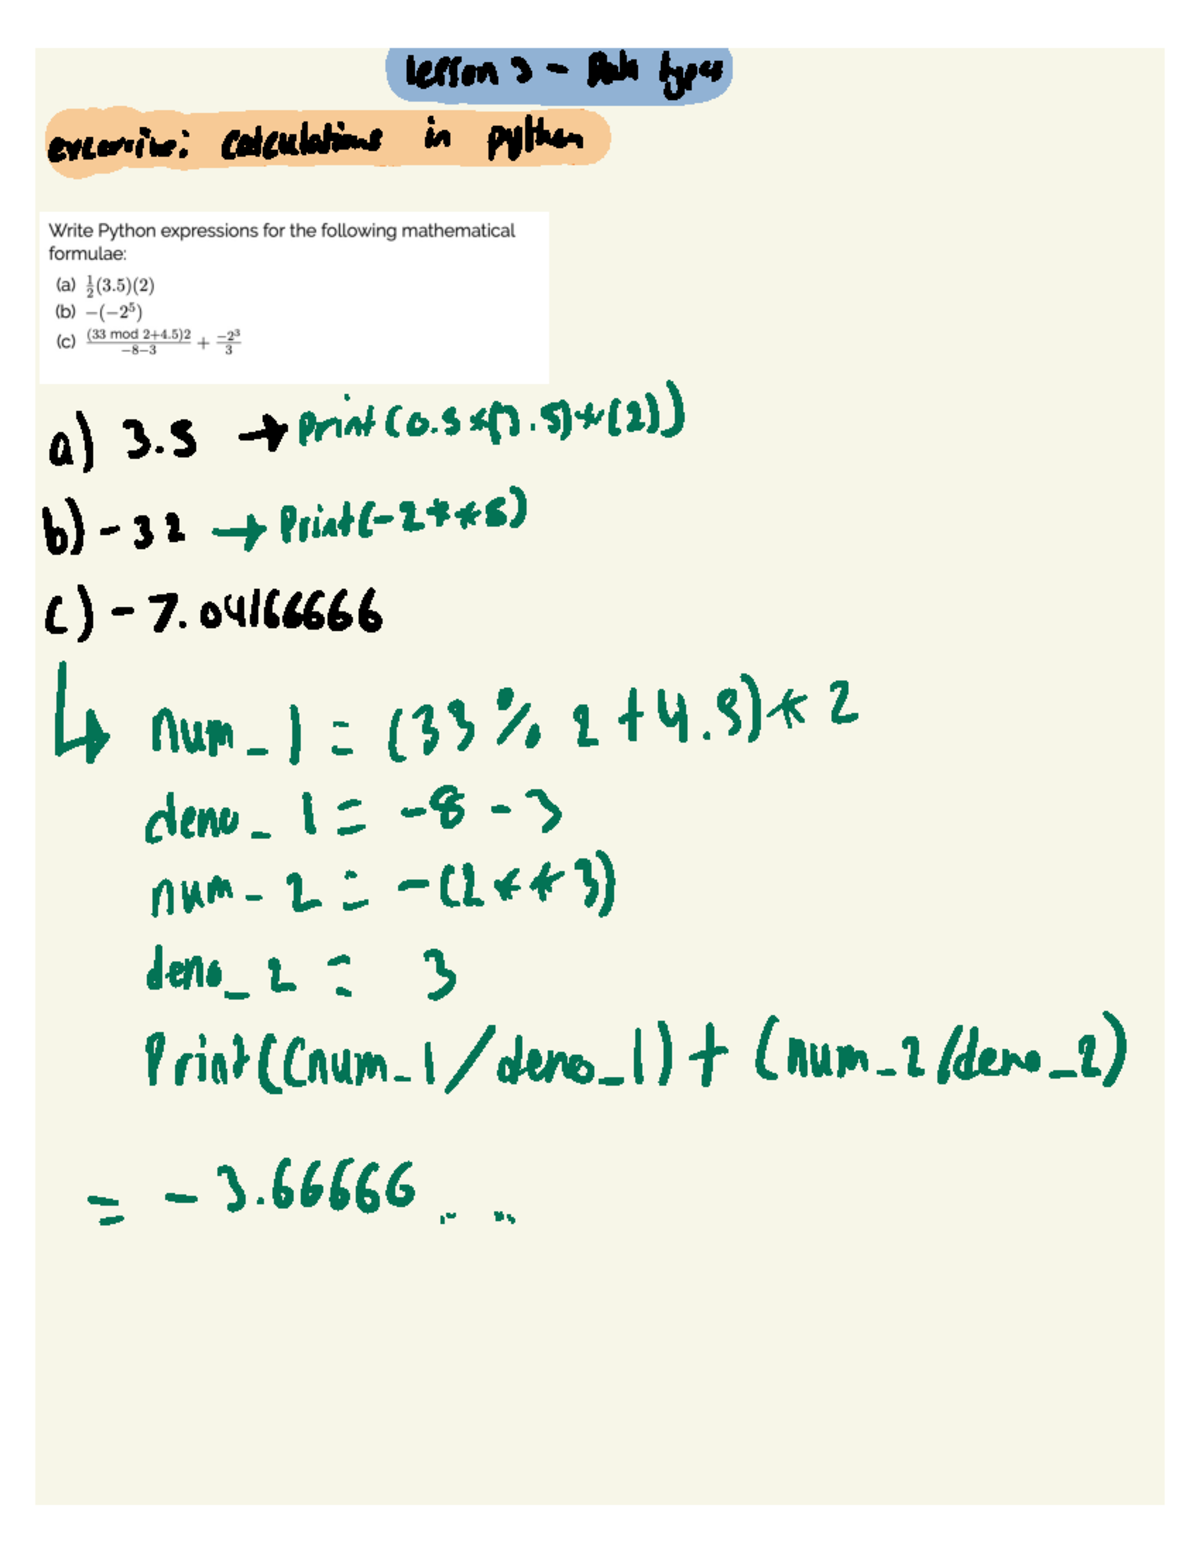 lesson 3 - Data types
excersise: calculations in python
Write Python expressions for the following mathematical
formulae:
(a) ½(3.5)(2)
(b) −(−2⁵)
(c) (33 mod 2+4.5)2 / −8−3 + −2³ / 3
a) 3.5 → Print(0.5*(3.5)*(2))
b) - 32 → Print(-2**5)
c) - 7.04166666
↳ num_1 = (33 % 2 + 4.5)* 2
deno_1 = -8 - 3
num_2 = -(2**3)
deno_2 = 3
Print((num_1/deno_1) + (num_2/deno_2)
= - 3.66666.. ..